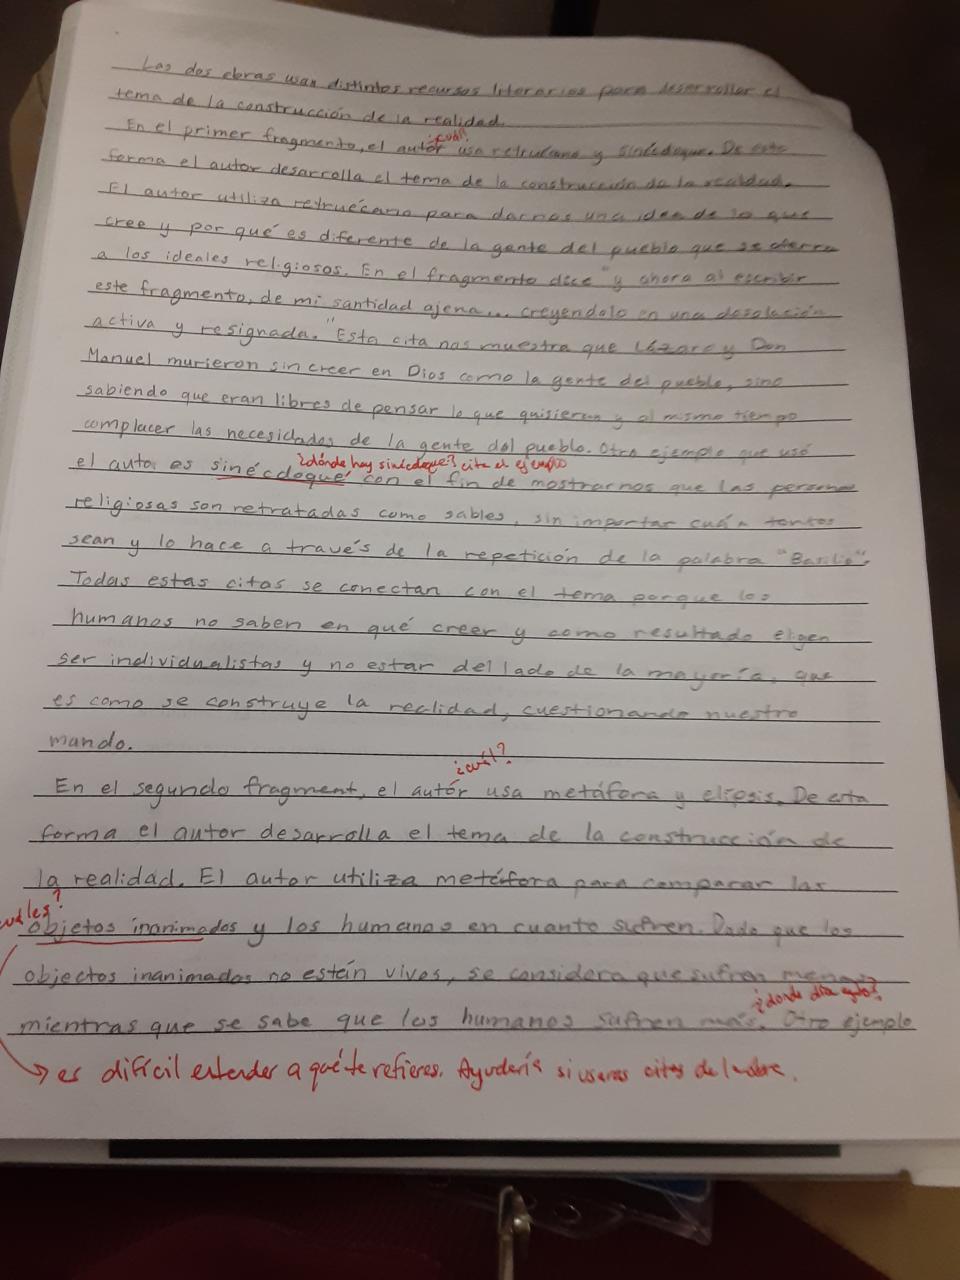 Las dos obras usan distintos recursos literarios para desarrollar el
tema de la construcción de la realidad.
¿cuál?
En el primer fragmento, el autor usa retruécano y sinécdoque. De esta
forma el autor desarrolla el tema de la construcción de la realidad.
El autor utiliza retruécano para darnos una idea de lo que
cree y por qué es diferente de la gente del pueblo que se aferra
a los ideales religiosos. En el fragmento dice "y ahora al escribir
este fragmento, de mi santidad ajena... creyendolo en una desolación
activa y resignada." Esta cita nos muestra que Lázaro y Don
Manuel murieron sin creer en Dios como la gente del pueblo, sino
sabiendo que eran libres de pensar lo que quisieran y al mismo tiempo
complacer las necesidades de la gente del pueblo. Otro ejemplo que usó
¿dónde hay sinécdoque? cita el ejemplo
el auto es sinécdoque con el fin de mostrarnos que las personas
religiosas son retratadas como sables, sin importar cuán tontos
sean y lo hace a través de la repetición de la palabra "Basilio".
Todas estas citas se conectan con el tema porque los
humanos no saben en qué creer y como resultado eligen
ser individualistas y no estar del lado de la mayoría, que
es como se construye la realidad, cuestionando nuestro
mando.
¿cuál?
En el segundo fragment, el autor usa metáfora y elipsis. De esta
forma el autor desarrolla el tema de la construcción de
la realidad. El autor utiliza metáfora para comparar las
¿cuáles?
objetos inanimados y los humanos en cuanto sufren. Dado que los
objectos inanimados no están vivos, se considera que sufren menos
¿donde dice esto?
mientras que se sabe que los humanos sufren más. Otro ejemplo
→ es difícil entender a qué te refieres. Ayudaría si usaras citas de la obra.